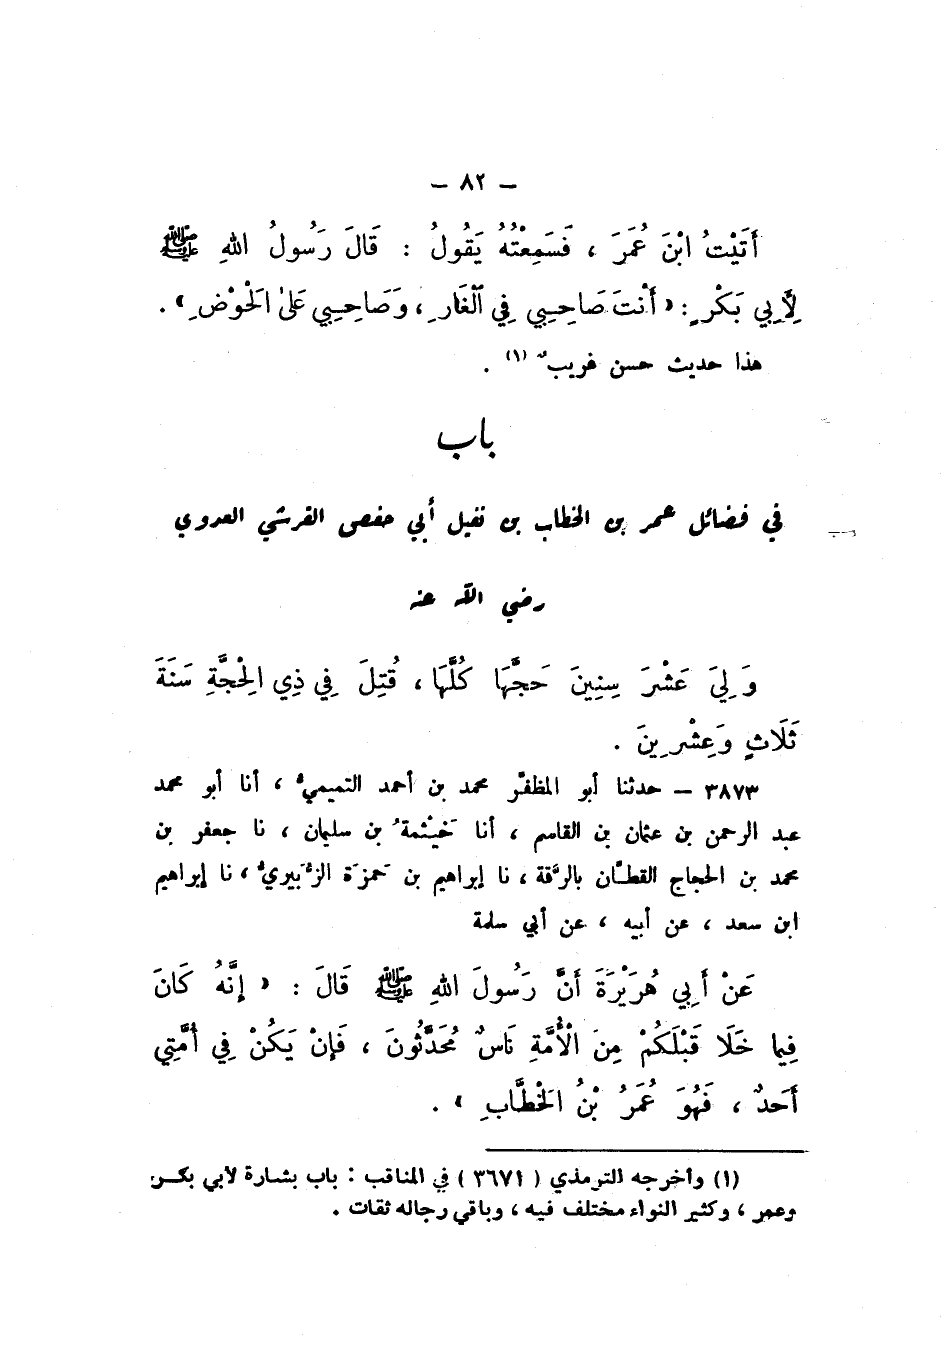 – ٨٢ –
أَتَيْتُ ابْنَ عُمَرَ ، فَسَمِعْتُهُ يَقُولُ : قَالَ رَسُولُ اللهِ ﷺ
لِأَبِي بَكْرٍ : « أَنْتَ صَاحِبِي فِي ٱلْغَارِ ، وَصَاحِبِي عَلىٰ الْحَوْضِ » .
هذا حديث حسن غريبٌ (١) .
باب
في فضائل عمر بن الخطاب بن نفيل أبي حفص القرشي العدوي
رضي الله عنه
وَلِيَ عَشْرَ سِنِينَ حَجَّهَا كُلَّهَا ، قُتِلَ فِي ذِي الْحِجَّةِ سَنَةَ
ثَلَاثٍ وَعِشْرِينَ .
٣٨٧٣ – حدثنا أبو المظفّر محمد بن أحمد التميميُّ ، أنا أبو محمد
عبد الرحمن بن عثمان بن القاسم ، أنا خَيْثمةُ بن سليمان ، نا جعفر بن
محمد بن الحجاج القطّان بالرَّقة ، نا إبراهيم بن حَمزَة الزُّبَيريُّ ، نا إبراهيم
ابن سعد ، عن أبيه ، عن أبي سلمة
عَنْ أَبِي هُرَيْرَةَ أَنَّ رَسُولَ اللهِ ﷺ قَالَ : « إِنَّهُ كَانَ
فِيما خَلَا قَبْلَكُمْ مِنَ الْأُمَّةِ نَاسٌ مُحَدَّثُونَ ، فَإِنْ يَكُنْ فِي أُمَّتِي
أَحَدٌ ، فَهُوَ عُمَرُ بْنُ الْخَطَّابِ » .
(١) وأخرجه الترمذي ( ٣٦٧١ ) في المناقب : باب بشارة لأبي بكر
وعمر ، وكثير النواء مختلف فيه ، وباقي رجاله ثقات .